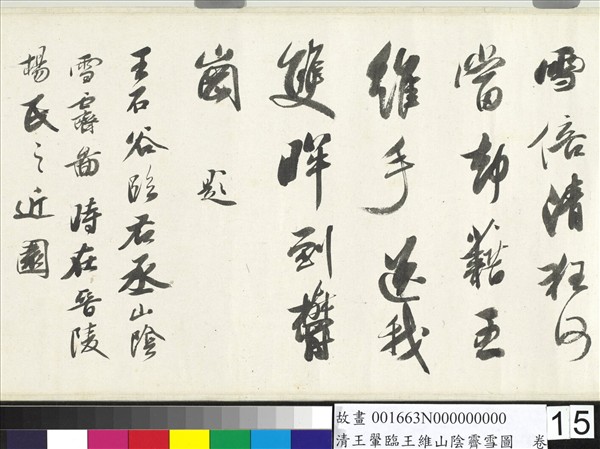 雪倍清狂何
當却藉王
維手送我
雙眸到欝
崗 題
王石谷臨右丞山陰
雪霽圖時在晉陵
楊氏之近園
故畫 001663N000000000
清王翬臨王維山陰霽雪圖 卷
15